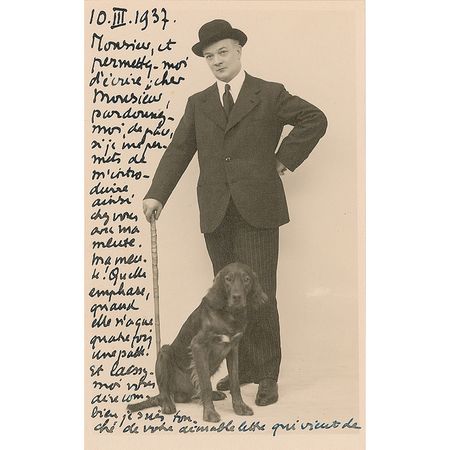 10.III.1937.
Monsieur, et
permettez-moi
d'écrire, cher
Monsieur,
pardonnez-
moi, de plus,
si je me per-
mets de
m'intro-
duire
ainsi
chez vous
avec ma
meute.
Ma meu-
te! Quelle
emphase,
quand
elle n'a que
quatre fois
une patte.
Et laissez-
moi vous
dire com-
bien je suis tou-
ché de votre aimable lettre qui vient de